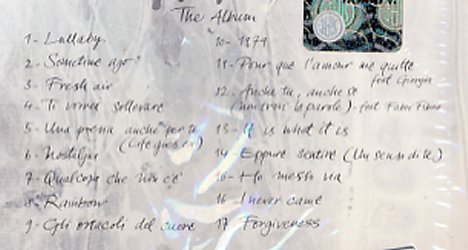 The Album
1 - Lullaby
2 - Sometime ago
3 - Fresh air
4 - Ti vorrei sollevare
5 - Una poesia anche per te
(Life goes on)
6 - Nostalgia
7 - Qualcosa che non c'è
8 - Rainbow
9 - Gli ostacoli del cuore
10 - 1979
11 - Pour que l'amour me quitte
feat Giorgia
12 - Anche tu, anche se
(non trovi le parole) - feat Fabri Fibra
13 - It is what it is
14 - Eppure sentire (Un senso di te)
15 - Ho messo via
16 I never came
17 Forgiveness